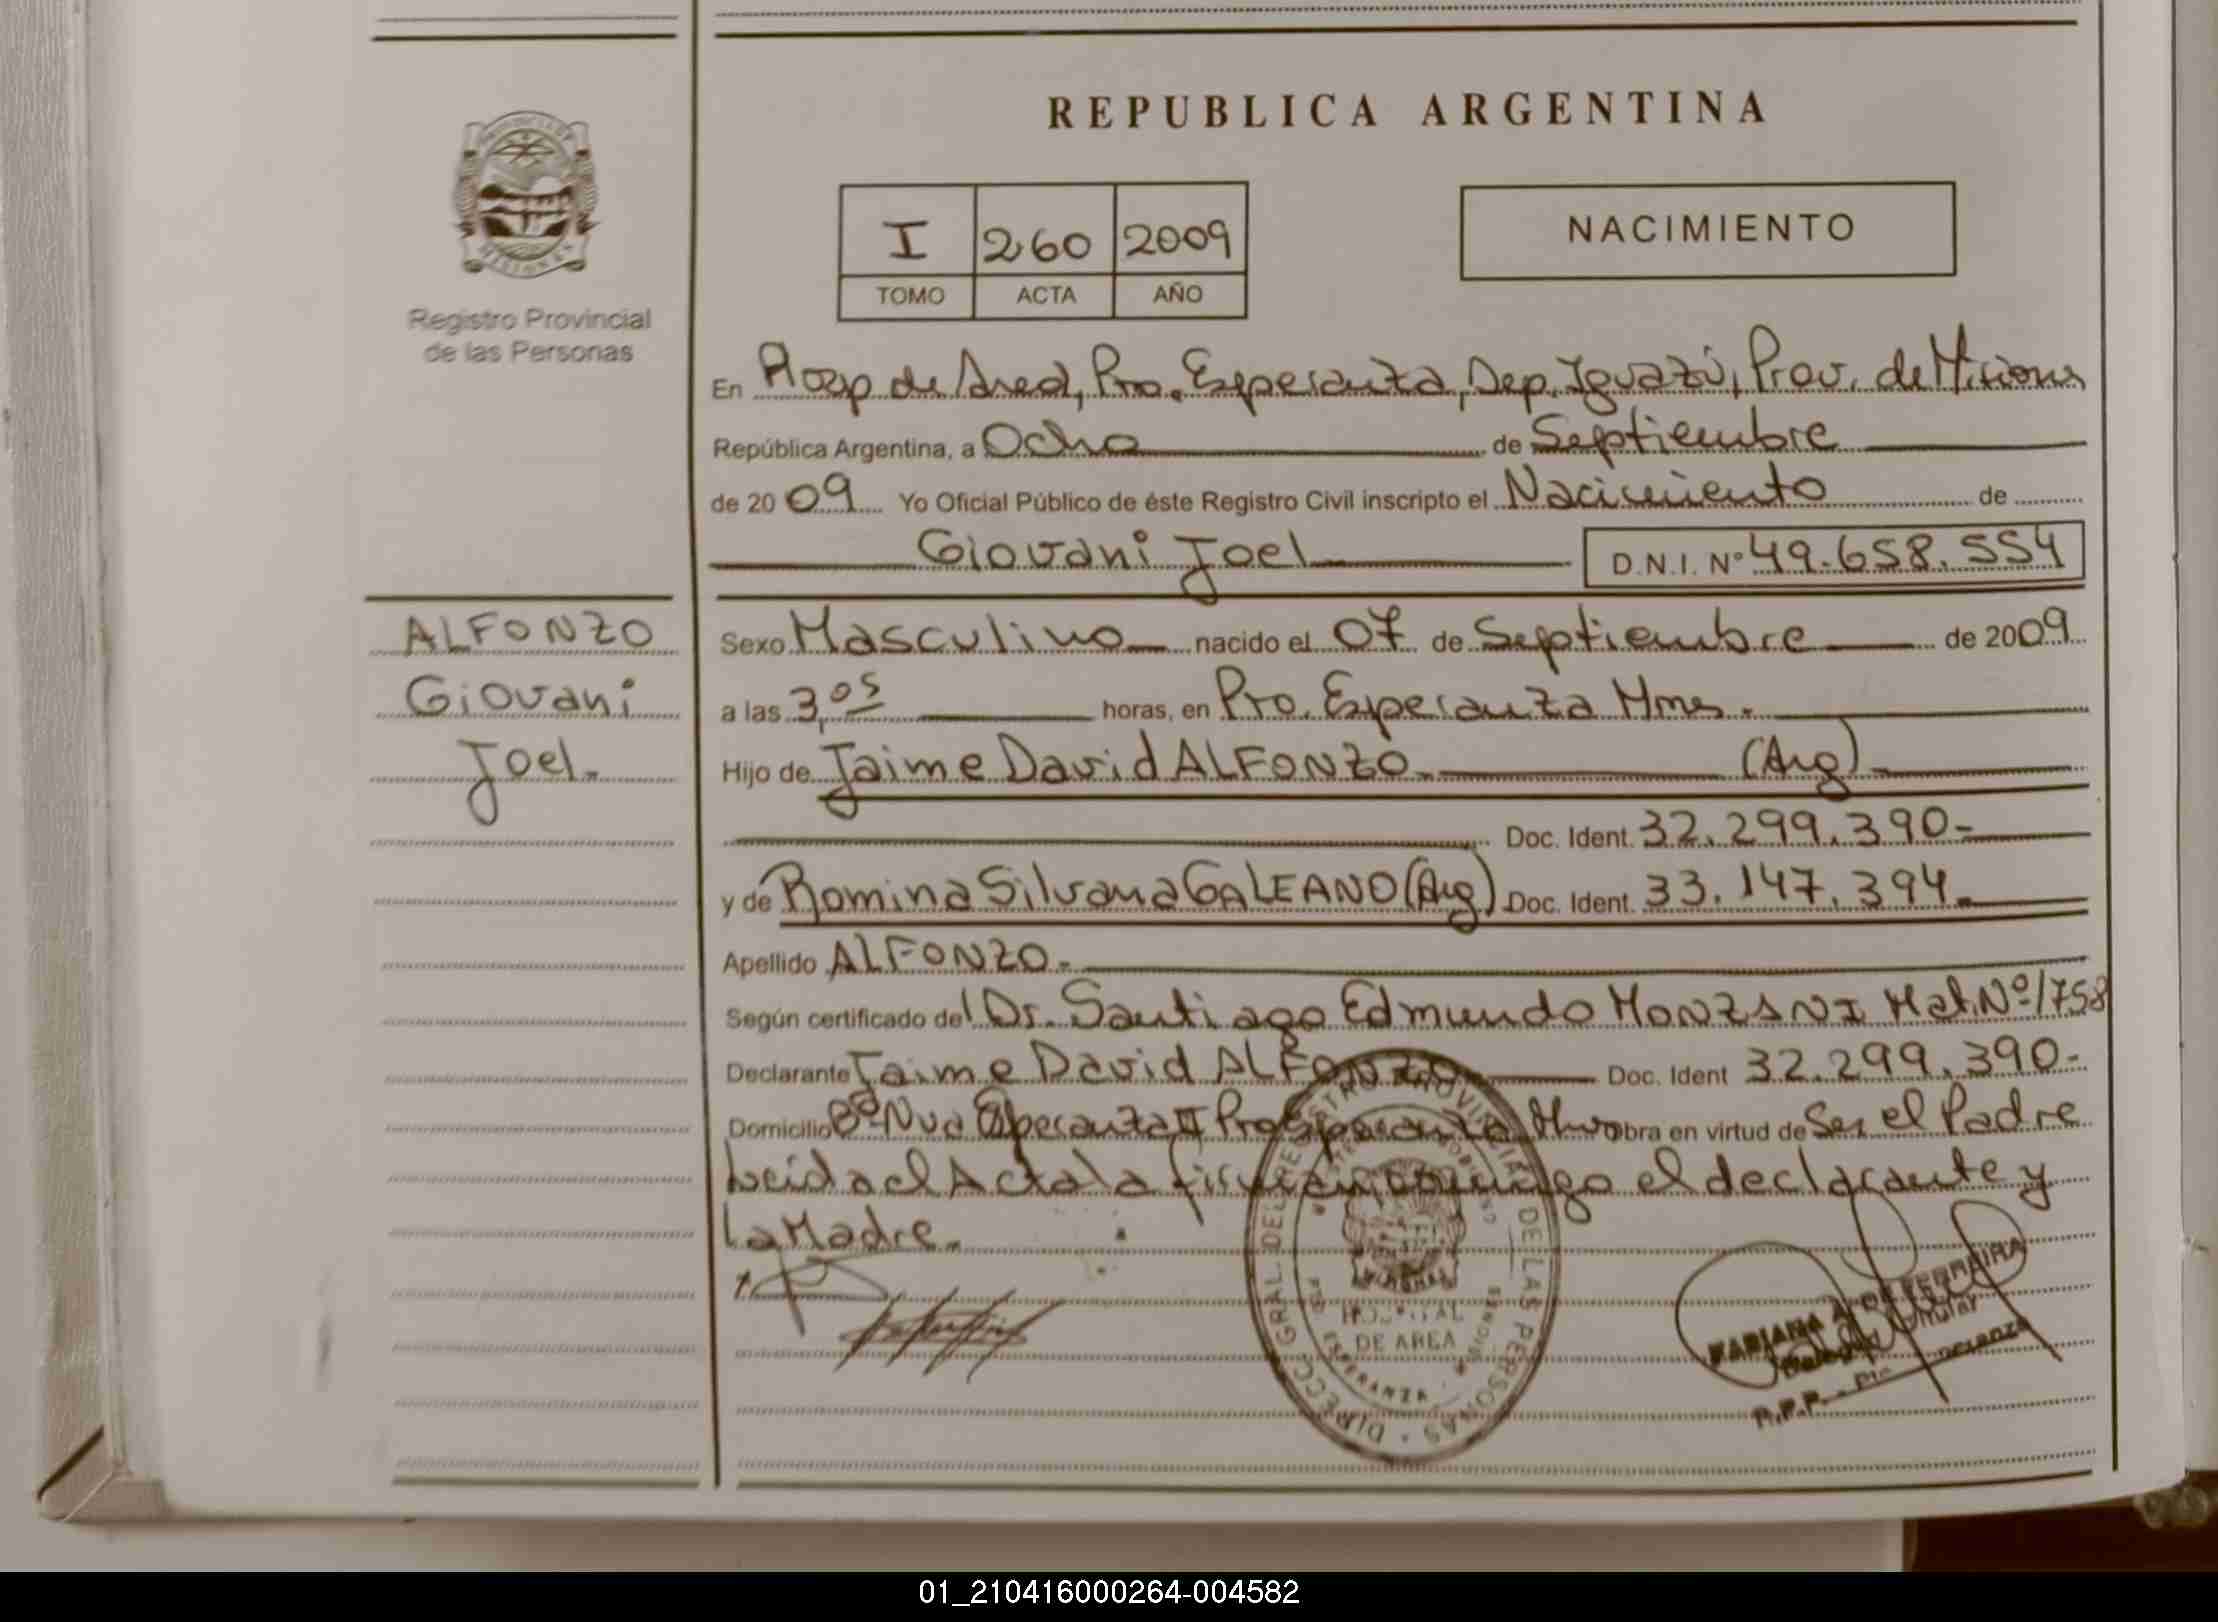 REPUBLICA ARGENTINA
I 260 2009
TOMO ACTA AÑO
NACIMIENTO
MISIONES
Registro Provincial
de las Personas
En Hosp de Area, Pto. Esperanza, Dep. Iguazú, Prov. de Misiones
República Argentina, a Ocho de Septiembre
de 2009 Yo Oficial Público de éste Registro Civil inscripto el Nacimiento de
Giovani Joel D.N.I. Nº 49.658.554
ALFONZO
Giovani
Joel.
Sexo Masculino nacido el 07 de Septiembre de 2009
a las 3,05 horas, en Pto. Esperanza Mnes.
Hijo de Jaime David ALFONZO. (Arg)
Doc. Ident. 32.299.390-
y de Romina Silvana GALEANO (Arg) Doc. Ident. 33.147.394.
Apellido ALFONZO.
Según certificado del Dr. Santiago Edmundo MONZANI Mat. Nº 1758
Declarante Jaime David ALFONZO Doc. Ident 32.299.390-
Domicilio Bº Nva Esperanza II Pto Esperanza obra en virtud de Ser el Padre
Leida el Acta la firman conmigo el declarante y
la Madre.
DIRECC. GRAL. DEL REGISTRO PROVINCIAL DE LAS PERSONAS
MISIONES
HOSPITAL
DE AREA
ESPERANZA - MISIONES
FABIANA FERREIRA
Titular
R.P.P. - Pto Esperanza
01_210416000264-004582